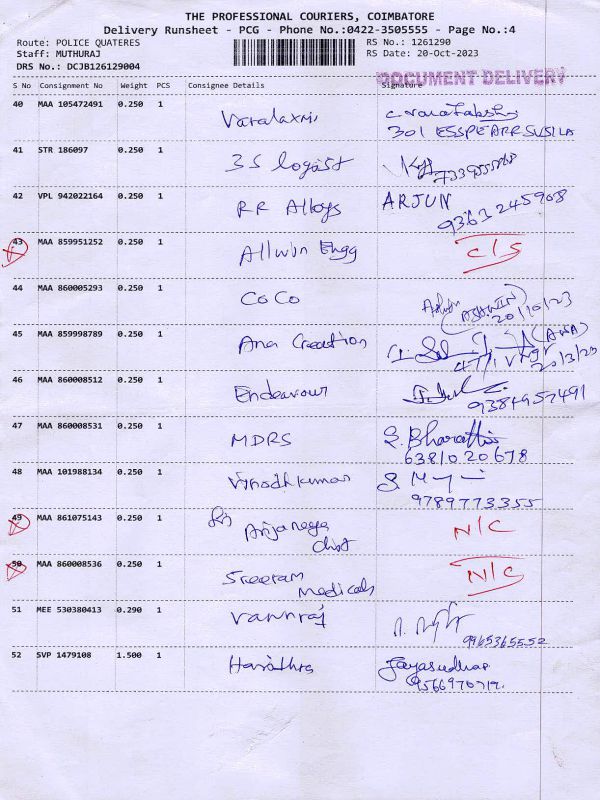 THE PROFESSIONAL COURIERS, COIMBATORE
Delivery Runsheet - PCG - Phone No.:0422-3505555 - Page No.:4
Route: POLICE QUATERES RS No.: 1261290
Staff: MUTHURAJ RS Date: 20-Oct-2023
DRS No.: DCJB126129004
DOCUMENT DELIVERY
S No Consignment No Weight PCS Consignee Details Signature
40 MAA 105472491 0.250 1 Varalaxmi
301 ESSPEARR SUSILA
41 STR 186097 0.250 1 3S logist
42 VPL 942022164 0.250 1 RR Alloys ARJUN
9363245908
43 MAA 859951252 0.250 1 Allwin Engg C/S
44 MAA 860005293 0.250 1 CoCo (ASHWIN)
20/10/23
45 MAA 859998789 0.250 1 Ana Creation (ANA)
46 MAA 860008512 0.250 1 Endeavour
9384957491
47 MAA 860008531 0.250 1 MDRS S. Bharathi
6381020678
48 MAA 101988134 0.250 1 Vinodhkumar
9789773355
49 MAA 861075143 0.250 1 Sri Anjaneya N/C
50 MAA 860008536 0.250 1 Sreeram N/C
Medicals
51 MEE 530380413 0.290 1 Vannraj
9965365552
52 SVP 1479108 1.500 1 Jayasudhar
9566970719.